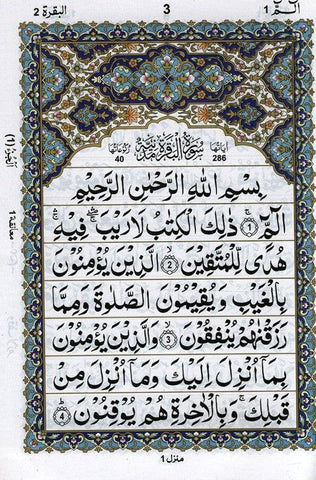 الٓمّٓ ١ 3 البقرة ٢
سُوْرَةُ الْبَقَرَةِ مَدَنِيَّةٌ
اٰيَاتُهَا 286 رُكُوْعَاتُهَا 40
بِسْمِ اللّٰهِ الرَّحْمٰنِ الرَّحِيْمِ
الٓمّٓ ۚ﴿۱﴾ ذٰلِكَ الْكِتٰبُ لَا رَيْبَ ۛۖۚ فِيْهِ ۛۚ
هُدًى لِّلْمُتَّقِيْنَ ۙ﴿۲﴾ الَّذِيْنَ يُؤْمِنُوْنَ
بِالْغَيْبِ وَ يُقِيْمُوْنَ الصَّلٰوةَ وَ مِمَّا
رَزَقْنٰهُمْ يُنْفِقُوْنَ ۙ﴿۳﴾ وَ الَّذِيْنَ يُؤْمِنُوْنَ
بِمَاۤ اُنْزِلَ اِلَيْكَ وَ مَاۤ اُنْزِلَ مِنْ
قَبْلِكَ ۚ وَ بِالْاٰخِرَةِ هُمْ يُوْقِنُوْنَ ؕ﴿۴﴾
منزل ١
معانقة ١